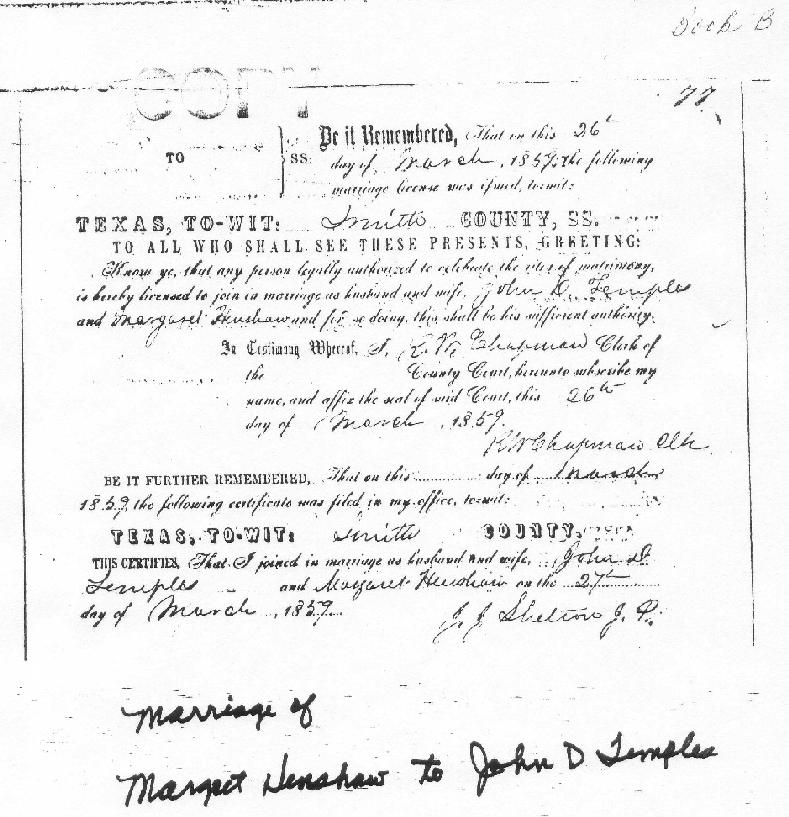 Book B
COPY
77
Be it Remembered, That on this 26th
TO
SS:
day of March, 1859, the following
marriage license was issued, to-wit:
TEXAS, TO-WIT: Smith COUNTY, SS.
TO ALL WHO SHALL SEE THESE PRESENTS, GREETING:
Know ye, that any person legally authorized to celebrate the rites of matrimony,
is hereby licensed to join in marriage as husband and wife, John D. Temples
and Margaret Henshaw and for so doing, this shall be his sufficient authority.
In Testimony Whereof, I, R. W. Chapman Clerk of
the County Court, hereunto subscribe my
name, and affix the seal of said Court, this 26th
day of March, 1859.
R W Chapman Clk
BE IT FURTHER REMEMBERED, That on this day of March
1859 the following certificate was filed in my office, to-wit:
TEXAS, TO-WIT: Smith COUNTY,
THIS CERTIFIES, That I joined in marriage as husband and wife, John D
Temples and Margaret Henshaw on the 27th
day of March, 1859.
J. J. Shelton J. P.
Marriage of
Margret Henshaw to John D Temples